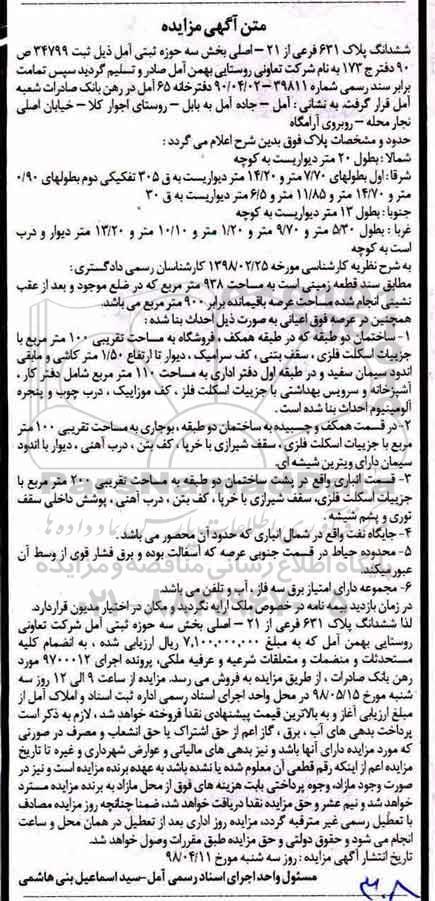 متن آگهی مزایده
ششدانگ پلاک ۶۳۱ فرعی از ۲۱ – اصلی بخش سه حوزه ثبتی آمل ذیل ثبت ۳۴۷۹۹ ص
۹۰ دفتر ج ۱۷۳ به نام شرکت تعاونی روستایی بهمن آمل صادر و تسلیم گردید سپس تمامت
برابر سند رسمی شماره ۳۹۸۱۱ – ۹۰/۰۴/۰۲ دفترخانه ۶۵ آمل در رهن بانک صادرات شعبه
آمل قرار گرفت. به نشانی : آمل – جاده آمل به بابل – روستای اجوار کلا – خیابان اصلی
نجار محله – روبروی آرامگاه
حدود و مشخصات پلاک فوق بدین شرح اعلام می گردد :
شمالا : بطول ۲۰ متر دیواریست به کوچه
شرقا : اول بطولهای ۷/۷۰ متر و ۱۴/۲۰ متر دیواریست به ق ۳۰۵ تفکیکی دوم بطولهای ۰/۹۰
متر و ۱۴/۷۰ متر و ۱۱/۸۵ متر و ۶/۵ متر دیواریست به ق ۳۰
جنوبا : بطول ۱۳ متر دیواریست به کوچه
غربا : بطول ۵/۳۰ متر و ۹/۷۰ متر و ۱/۲۰ متر و ۱۰/۱۰ متر و ۱۳/۲۰ متر دیوار و درب
است به کوچه
به شرح نظریه کارشناسی مورخه ۱۳۹۸/۰۲/۲۵ کارشناسان رسمی دادگستری :
مطابق سند قطعه زمینی است به مساحت ۹۳۸ متر مربع که در ضلع موجود و بعد از عقب
نشینی انجام شده مساحت عرصه باقیمانده برابر ۹۰۰ متر مربع می باشد.
همچنین در عرصه فوق اعیانی به صورت ذیل احداث بنا شده :
۱- ساختمان دو طبقه که در طبقه همکف ، فروشگاه به مساحت تقریبی ۱۰۰ متر مربع با
جزییات اسکلت فلزی ، سقف بتنی ، کف سرامیک ، دیوار تا ارتفاع ۱/۵۰ متر کاشی و مابقی
اندود سیمان سفید و در طبقه اول دفتر اداری به مساحت ۱۱۰ متر مربع شامل دفتر کار ،
آشپزخانه و سرویس بهداشتی با جزییات اسکلت فلز ، کف موزاییک ، درب چوب و پنجره
آلومینیوم احداث بنا شده است .
۲- در قسمت همکف و چسبیده به ساختمان دو طبقه ، بوجاری به مساحت تقریبی ۱۰۰ متر
مربع با جزییات اسکلت فلزی ، سقف شیرازی با خرپا ، کف بتن ، درب آهنی ، دیوار با اندود
سیمان دارای ویترین شیشه ای.
۳- قسمت انباری واقع در پشت ساختمان دو طبقه به مساحت تقریبی ۲۰۰ متر مربع با
جزییات اسکلت فلزی، سقف شیرازی با خرپا ، کف بتن ، درب آهنی ، پوشش داخلی سقف
توری و پشم شیشه .
۴- جایگاه نفت واقع در شمال انباری که حدود آن محصور می باشد .
۵- محدوده حیاط در قسمت جنوبی عرصه که آسفالت بوده و برق فشار قوی از وسط آن
عبور میکند.
۶- مجموعه دارای امتیاز برق سه فاز ، آب و تلفن می باشد.
در زمان بازدید بیمه نامه در خصوص ملک ارایه نگردید و مکان در اختیار مدیون قرار دارد.
لذا ششدانگ پلاک ۶۳۱ فرعی از ۲۱ – اصلی بخش سه حوزه ثبتی آمل شرکت تعاونی
روستایی بهمن آمل که به مبلغ ۷,۱۰۰,۰۰۰,۰۰۰ ریال ارزیابی شده ، به انضمام کلیه
مستحدثات و منضمات و متعلقات شرعیه و عرفیه ملکی، پرونده اجرای ۹۷۰۰۰۱۲ مورد
رهن بانک صادرات ، از طریق مزایده به فروش می رسد. مزایده از ساعت ۹ الی ۱۲ روز سه
شنبه مورخ ۹۸/۰۵/۱۵ در محل واحد اجرای اسناد رسمی اداره ثبت اسناد و املاک آمل از
مبلغ ارزیابی آغاز و به بالاترین قیمت پیشنهادی نقدا فروخته خواهد شد ، لازم به ذکر است
پرداخت بدهی های آب ، برق ، گاز اعم از حق اشتراک یا حق انشعاب و مصرف در صورتی
که مورد مزایده دارای آنها باشد و نیز بدهی های مالیاتی و عوارض شهرداری و غیره تا تاریخ
مزایده اعم از اینکه رقم قطعی آن معلوم شده یا نشده باشد به عهده برنده مزایده است و نیز در
صورت وجود مازاد، وجوه پرداختی بابت هزینه های فوق از محل مازاد به برنده مزایده مسترد
خواهد شد و نیم عشر و حق مزایده نقدا دریافت خواهد شد، ضمنا چنانچه روز مزایده مصادف
با تعطیل رسمی غیر مترقبه گردد، مزایده روز اداری بعد از تعطیل در همان محل و ساعت
انجام می شود و حقوق دولتی و حق مزایده طبق مقررات وصول خواهد شد.
تاریخ انتشار آگهی مزایده : روز سه شنبه مورخ ۹۸/۰۴/۱۱
مسئول واحد اجرای اسناد رسمی آمل-سید اسماعیل بنی هاشمی